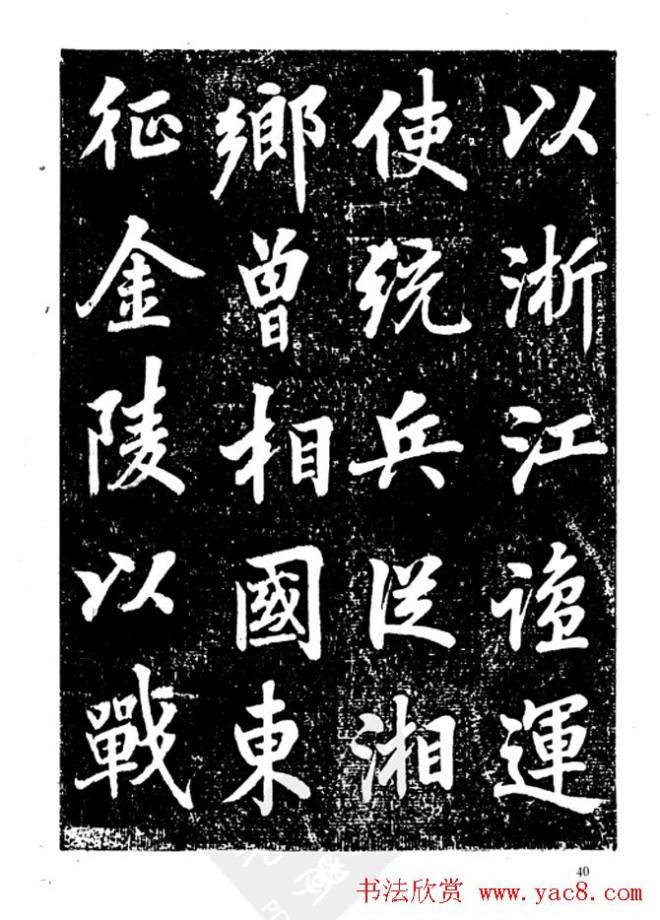 以浙江塩運
使統兵從湘
鄉曾相國東
征金陵以戰
40
书法欣赏 www.yac8.com